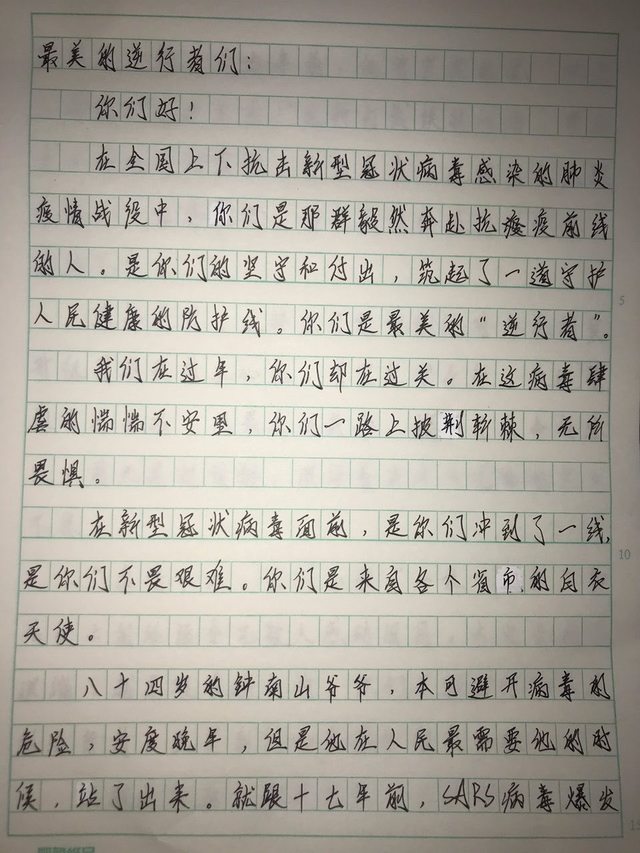 最美的逆行者们：
你们好！
在全国上下抗击新型冠状病毒感染的肺炎
疫情战役中，你们是那群毅然奔赴抗疫前线
的人。是你们的坚守和付出，筑起了一道守护
人民健康的防护线。你们是最美的“逆行者”。
我们在过年，你们却在过关。在这病毒肆
虐的惴惴不安里，你们一路上披荆斩棘，无所
畏惧。
在新型冠状病毒面前，是你们冲到了一线，
是你们不畏艰难。你们是来自各个省市的白衣
天使。
八十四岁的钟南山爷爷，本可避开病毒的
危险，安度晚年，但是他在人民最需要他的时
候，站了出来。就跟十七年前，SARS病毒爆发
5
10
15